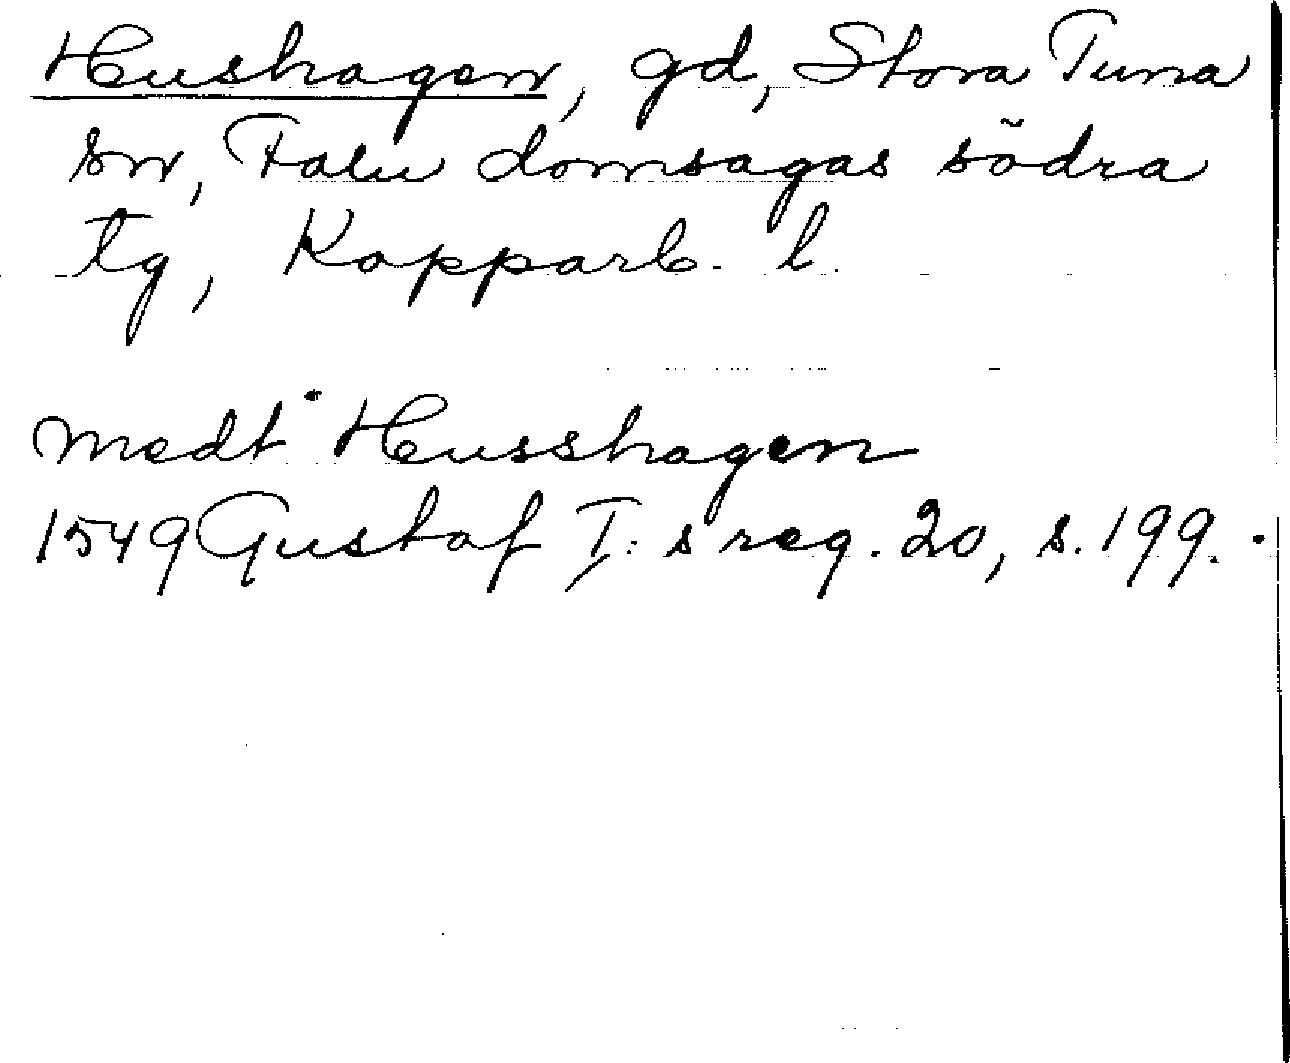 Hushagen, gd, Stora Tuna
sn, Falu domsagas södra
tg, Kopparb. l.
medt Husshagen
1549 Gustaf I:s reg. 20, s. 199.